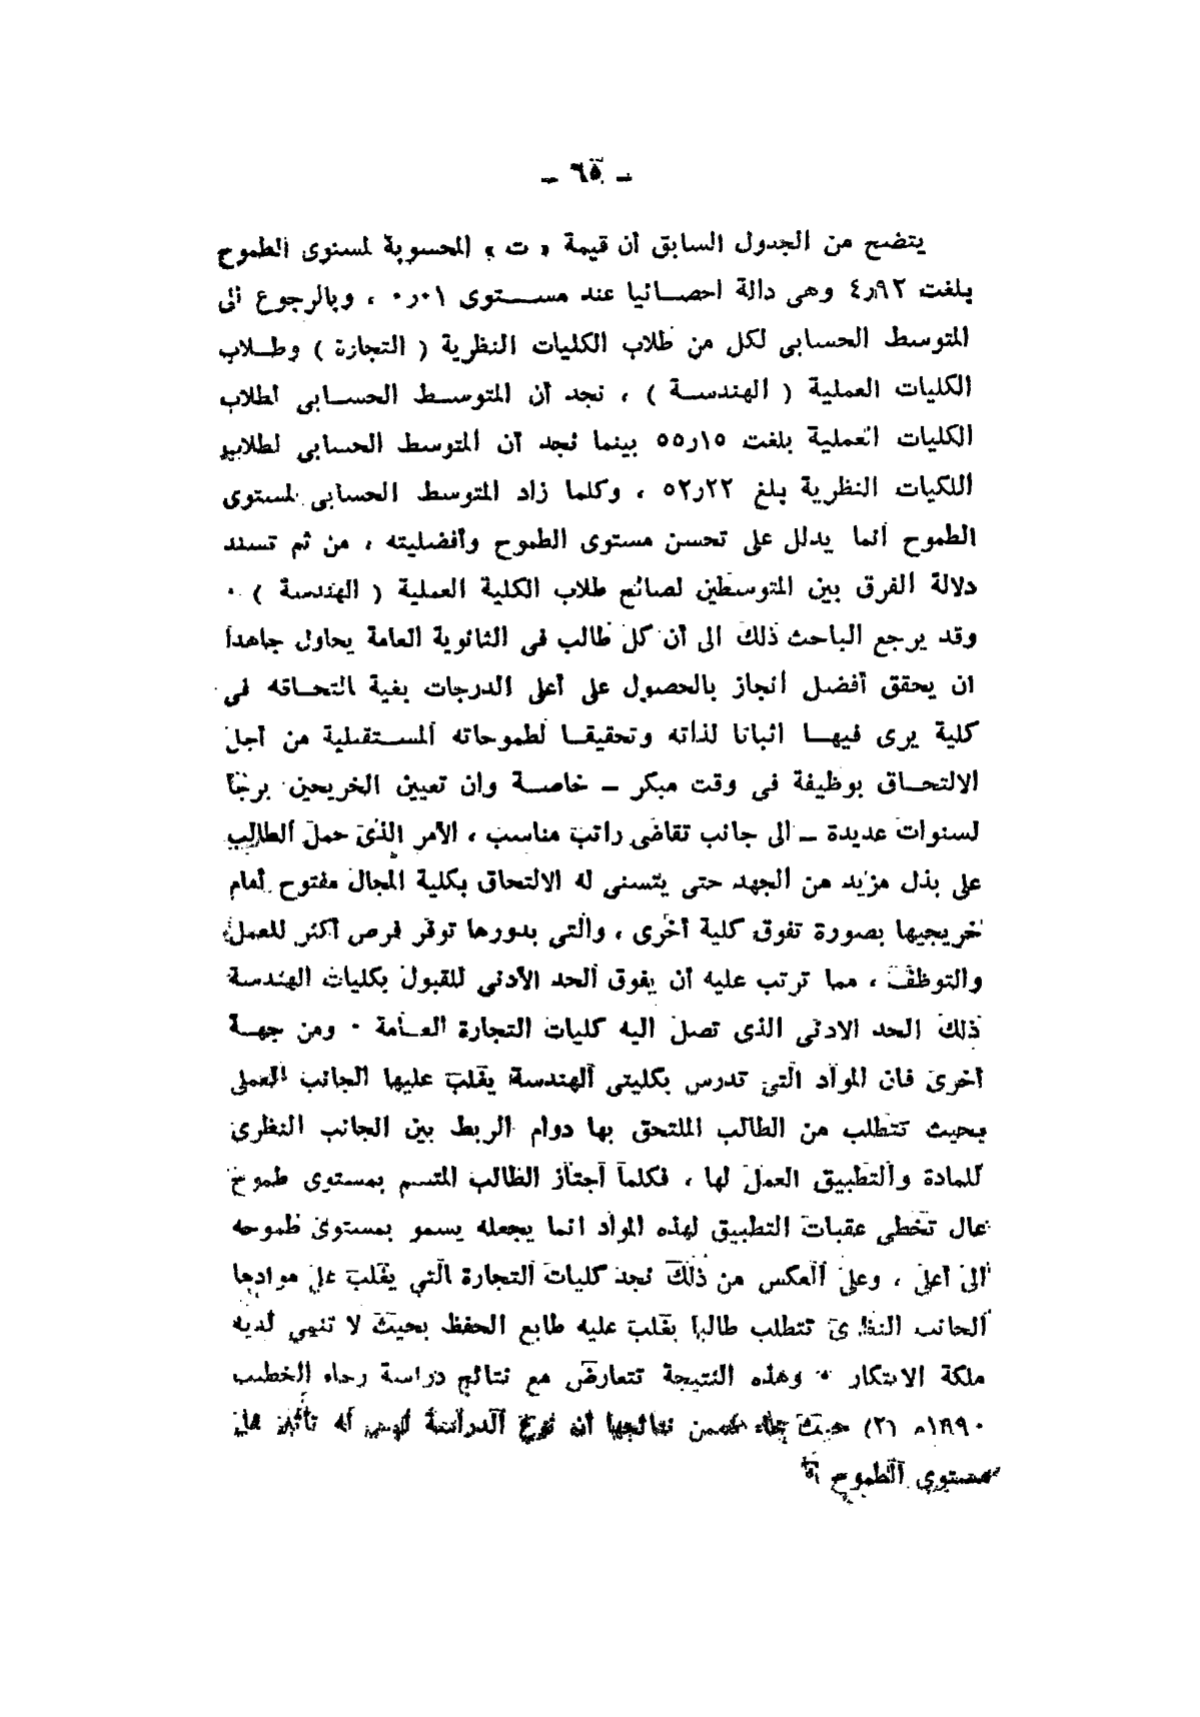 ـ ٦٥ ـ
يتضح من الجدول السابق أن قيمة « ت » المحسوبة لمستوى الطموح
بلغت ٤٫٩٢ وهى دالة احصائيا عند مستوى ٠٫٠١ ، وبالرجوع الى
المتوسط الحسابى لكل من طلاب الكليات النظرية ( التجارة ) وطلاب
الكليات العملية ( الهندسة ) ، نجد أن المتوسط الحسابى لطلاب
الكليات العملية بلغت ٥٥٫١٥ بينما نجد أن المتوسط الحسابى لطلاب
اللكيات النظرية بلغ ٥٢٫٢٢ ، وكلما زاد المتوسط الحسابى لمستوى
الطموح انما يدلل على تحسن مستوى الطموح وأفضليته ، من ثم تستند
دلالة الفرق بين المتوسطين لصالح طلاب الكلية العملية ( الهندسة ) ٠
وقد يرجع الباحث ذلك الى أن كل طالب فى الثانوية العامة يحاول جاهدا
ان يحقق أفضل انجاز بالحصول على أعلى الدرجات بغية التحاقه فى
كلية يرى فيها اثباتا لذاته وتحقيقا لطموحاته المستقبلية من أجل
الالتحاق بوظيفة فى وقت مبكر ـ خاصة وان تعيين الخريجين يرجأ
لسنوات عديدة ـ الى جانب تقاضى راتب مناسب ، الأمر الذى حمل الطالب
على بذل مزيد من الجهد حتى يتسنى له الالتحاق بكلية المجال مفتوح أمام
خريجيها بصورة تفوق كلية أخرى ، والتى بدورها توفر فرص أكثر للعمل
والتوظف ، مما ترتب عليه أن يفوق الحد الأدنى للقبول بكليات الهندسة
ذلك الحد الادنى الذى تصل اليه كليات التجارة العامة ٠ ومن جهة
أخرى فان المواد التى تدرس بكليتى الهندسة يغلب عليها الجانب العملى
بحيث تتطلب من الطالب الملتحق بها دوام الربط بين الجانب النظرى
للمادة والتطبيق العمل لها ، فكلما اجتاز الطالب المتسم بمستوى طموح
عال تخطى عقبات التطبيق لهذه المواد انما يجعله يسمو بمستوى طموحه
الى أعلى ، وعلى العكس من ذلك نجد كليات التجارة التى يغلب على موادها
الجانب النظرى تتطلب طالبا يغلب عليه طابع الحفظ بحيث لا تنمى لديه
ملكة الابتكار ٠ وهذه النتيجة تتعارض مع نتائج دراسة رجاء الخطيب
١٩٩٠م (٢) حيث جاء ضمن نتائجها أن نوع الدراسة ليس له تأثير على
مستوى الطموح